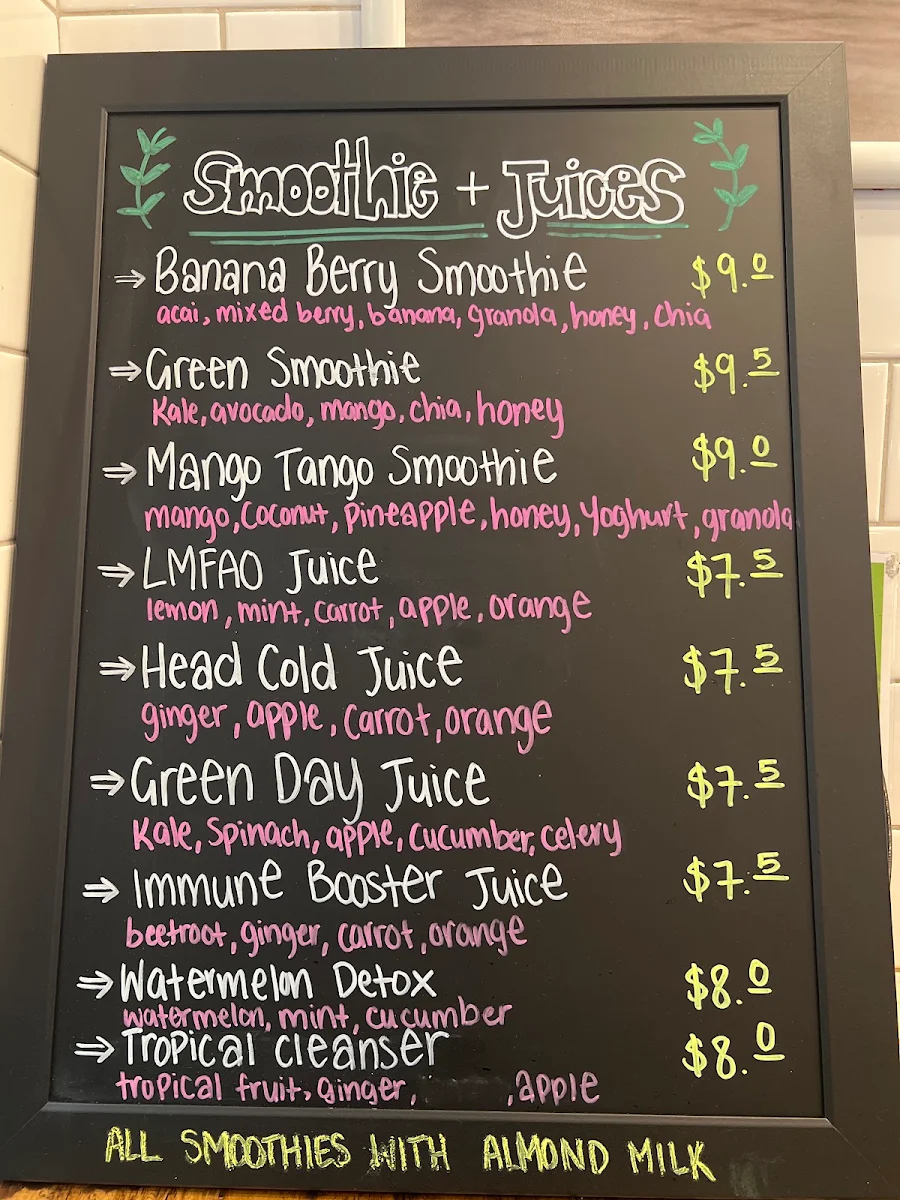 Smoothie + Juices
⇒ Banana Berry Smoothie $9.0
acai, mixed berry, banana, granola, honey, chia
⇒ Green Smoothie $9.5
Kale, avocado, mango, chia, honey
⇒ Mango Tango Smoothie $9.0
mango, Coconut, pineapple, honey, Yoghurt, granola
⇒ LMFAO Juice $7.5
lemon, mint, carrot, apple, orange
⇒ Head Cold Juice $7.5
ginger, apple, carrot, orange
⇒ Green Day Juice $7.5
Kale, Spinach, apple, cucumber, celery
⇒ Immune Booster Juice $7.5
beetroot, ginger, carrot, orange
⇒ Watermelon Detox $8.0
watermelon, mint, cucumber
⇒ Tropical cleanser $8.0
tropical fruit, ginger, , apple
ALL SMOOTHIES WITH ALMOND MILK